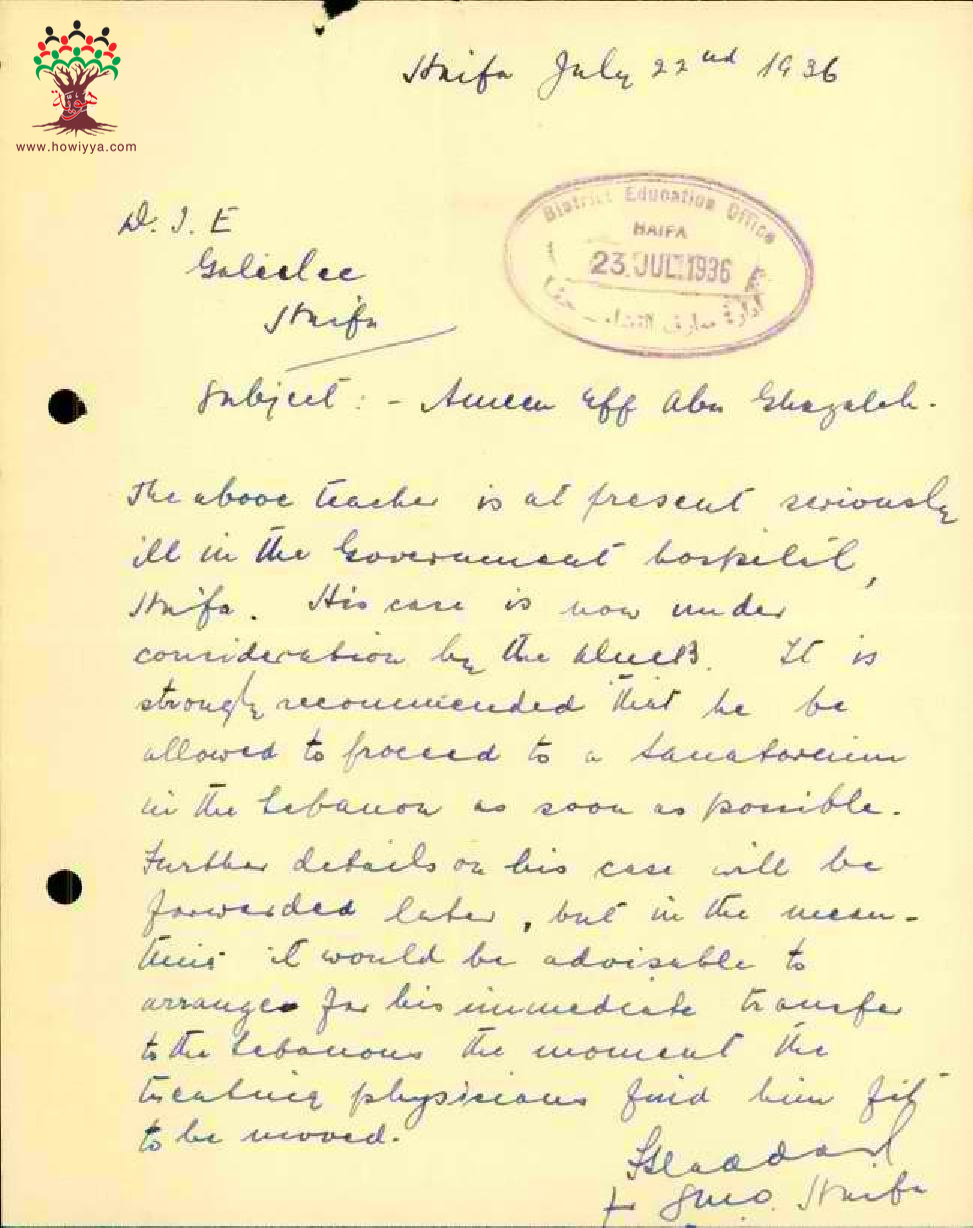 هوية
www.howiyya.com
Haifa July 22nd 1936
D. I. E
Galielee
Haifa
District Education Office
HAIFA
23 JUL 1936
إدارة معارف اللواء - حيفا
Subject: - Ameen Eff Abu Ghazaleh.
The above teacher is at present seriously
ill in the Government hospital,
Haifa. His case is now under
consideration by the
It is
strongly recommended that he be
allowed to proceed to a Sanatoreium
in the Lebanon as soon as possible.
Further details on his case will be
forwarded later, but in the mean-
time it would be advisable to
arrange for his immediate transfer
to the Lebanons the moment the
treating physicians find him fit
to be moved.
Haddad
f SMO. Haifa